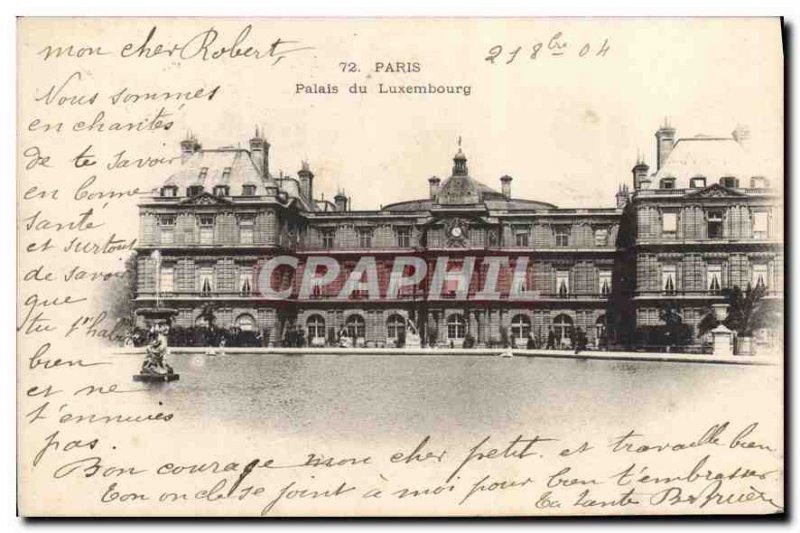 mon cher Robert,
21 8bre 04
72. PARIS
Palais du Luxembourg
Nous sommes
enchantés
de te savoir
en bonne
santé
et surtout
de savoir
que
tu t'hab
bien
et ne
t'ennuies
pas.
CPAPHIL
Bon courage mon cher petit et travaille bien
Ton oncle se joint à moi pour bien t'embrasser
Ta tante